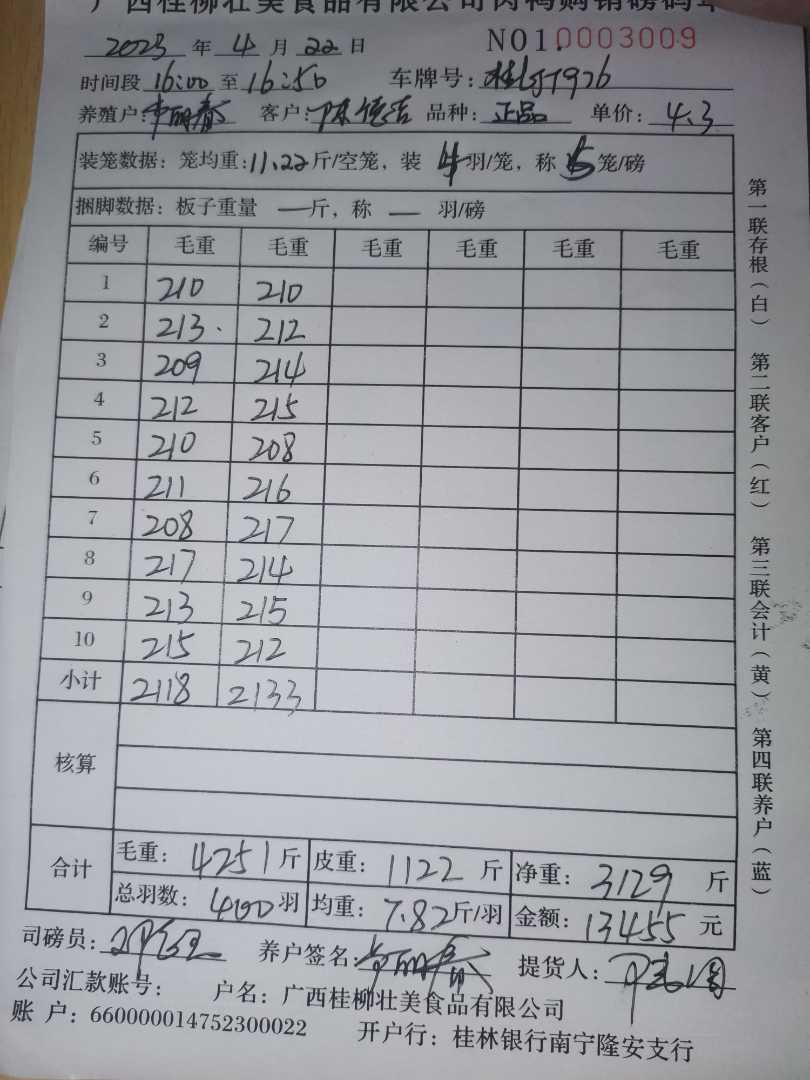 广西桂柳壮美食品有限公司肉鸭购销磅码单
2023 年 4 月 22 日 NO1.0003009
时间段 16:00 至 16:50 车牌号: 1976
养殖户: 客户: 品种: 正品 单价: 4.3
装笼数据: 笼均重: 11.22 斤/空笼, 装 4 羽/笼, 称 5 笼/磅
捆脚数据: 板子重量 — 斤, 称 — 羽/磅
编号 毛重 毛重 毛重 毛重 毛重 毛重
1 210 210
2 213. 212
3 209 214
4 212 215
5 210 208
6 211 216
7 208 217
8 217 214
9 213 215
10 215 212
小计 2118 2133
核算
合计
毛重: 4251 斤 皮重: 1122 斤 净重: 3129 斤
总羽数: 400 羽 均重: 7.82 斤/羽 金额: 13455 元
司磅员: 养户签名: 提货人:
公司汇款账号: 户名: 广西桂柳壮美食品有限公司
账 户: 660000014752300022 开户行: 桂林银行南宁隆安支行
第一联存根(白) 第二联客户(红) 第三联会计(黄) 第四联养户(蓝)